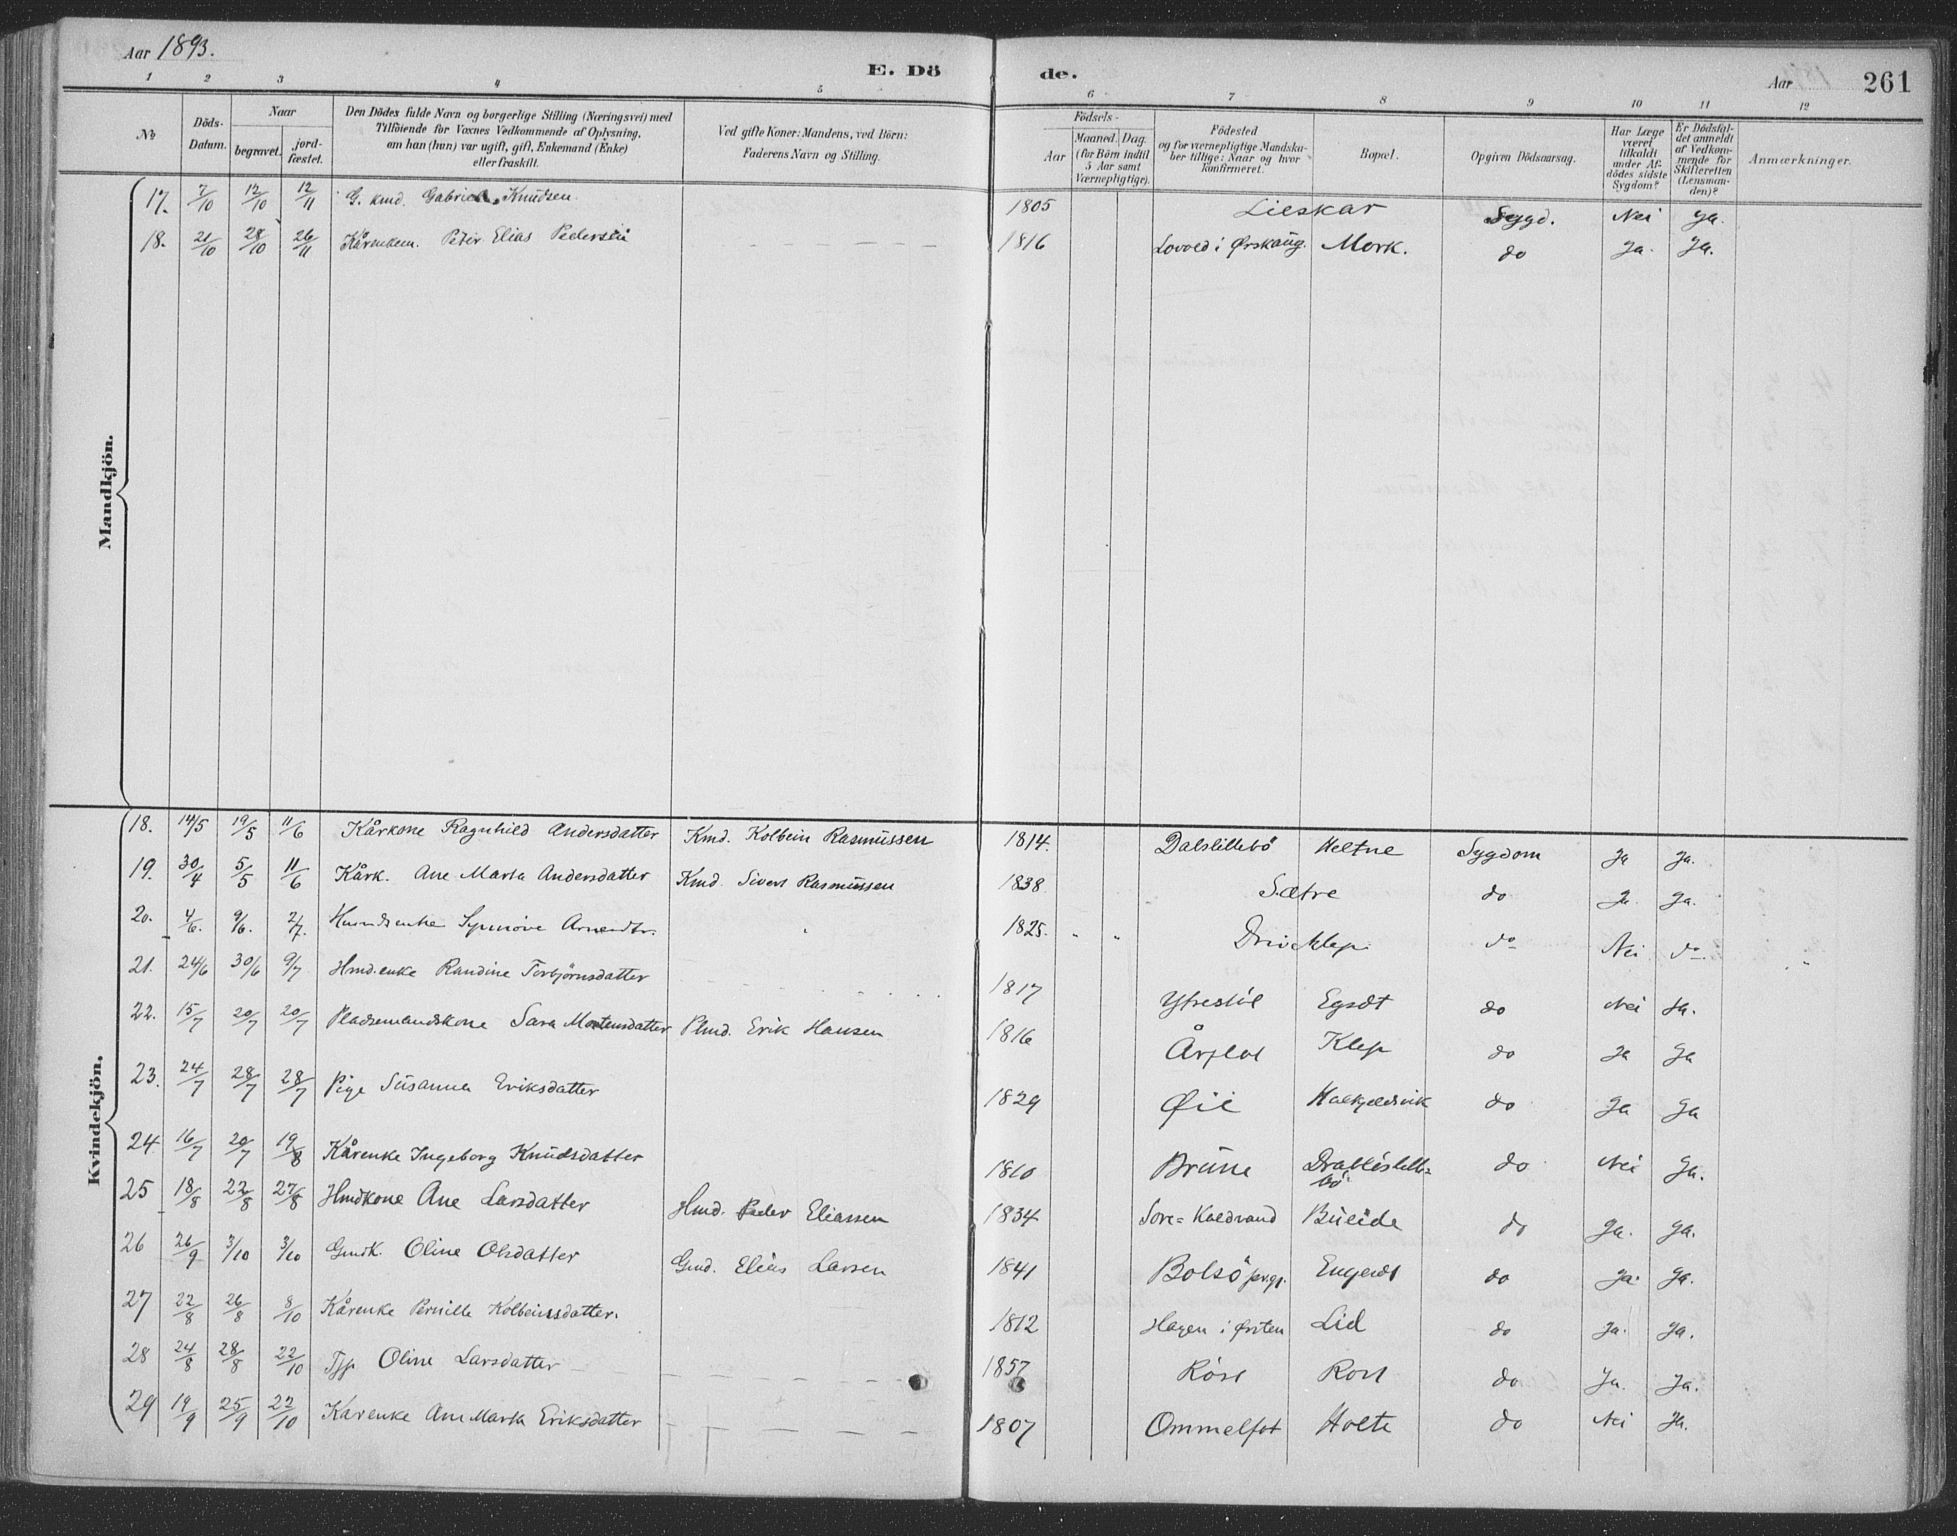 Aar 1893.
E. Dö de.
Aar 261
1 2 3 4 5 6 7 8 9 10 11 12
No
Döds-
Datum.
Naar
begravet.
jord-
fæstet.
Den Dödes fulde Navn og borgerlige Stilling (Næringsvei) med
Tilföiende for Voxnes Vedkommende af Oplysning,
om han (hun) var ugift, gift, Enkemand (Enke)
eller fraskilt.
Ved gifte Koner: Mandens, ved Börn:
Faderens Navn og Stilling.
Födsels-
Aar
Maaned. Dag.
(for Börn indtil
5 Aar samt
Værnepligtige).
Födested
og for værnepligtige Mandska-
ber tillige: Naar og hvor
konfirmeret.
Bopæl.
Opgiven Dödsaarsag.
Har Læge
været
tilkaldt
under Af-
dödes sidste
Sygdom?
Er Dödsfal-
det anmeldt
af Vedkom-
mende for
Skifteretten
(Lensman-
den)?
Anmærkninger.
Mandkjön.
17. 7/10 12/10 12/11 G. kmd. Gabriel Knudsen. 1805 Lieskar Sygd. Nei Ja.
18. 21/10 28/10 26/11 Kårenkem. Peter Elias Pedersen 1816 Lovold i Ørskaug. Mork. do Ja. Ja.
Kvindekjön.
18. 14/5 19/5 11/6 Kårkone Ragnhild Andersdatter Kmd. Kolbein Rasmussen 1814. Dalslillebö Heltne Sygdom Ja Ja.
19. 30/4 5/5 11/6 Kårk. Ane Marta Andersdatter Kmd. Sivert Rasmussen 1838 Sætre do Ja Ja.
20. 4/6. 9/6. 2/7. Huusmdsenke Synnöve Arnesdtr. 1825. " " Drivklep. do Nei do.
21. 24/6 30/6 9/7 Hmd.enke Randine Torbjörnsdatter 1817 Yttrestöl Egset do Nei Ja.
22. 15/7 20/7 20/7 Pladsemandskone Sara Mortensdatter Plmd. Erik Hansen 1816 Årflot Klep do Ja Ja
23. 24/7 28/7 28/7 Pige Susanna Eriksdatter 1829 Øie Halkjelsvik do Ja Ja
24. 16/7 20/7 19/8 Kårenke Ingeborg Knudsdatter 1810 Brune do Nei Ja.
25 18/8 22/8 27/8 Hmdkone Ane Larsdatter Hmd. Peder Eliassen 1834 Sore=Kaldvand Bueide do Ja. Ja.
26 26/9 3/10 3/10 Gmdk. Oline Olsdatter Gmd. Elias Larsen 1841 Bolsö prgj. Engeset do Ja. Ja.
27 22/8 26/8 8/10 Kårenke Pernille Kolbeinsdatter. 1812 Hagen i Østen Lid do Ja. Ja.
28 24/8 28/8 22/10 Tjp. Oline Larsdatter 1857 Röst Rost do Ja. Ja.
29 19/9 25/9 22/10 Kårenke Ane Marta Eriksdatter 1807 Ommelfot Holte do Nei Ja.